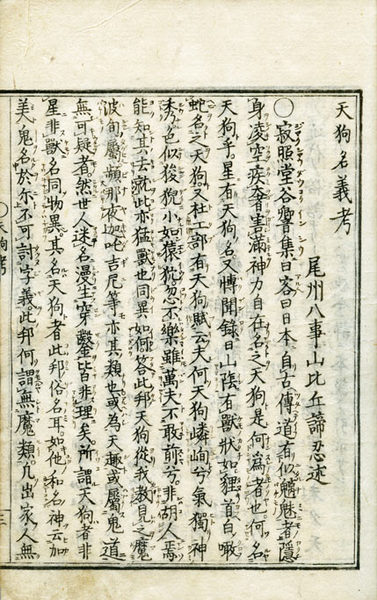 天狗名義考
尾州八事山比丘諦忍述
〇寂照堂谷響集曰客曰日本自古傳道有似魑魅者隱
身凌空疾奔害滿神力自在名之天狗是何爲者也何名
天狗乎星有天狗名又博聞錄曰山陰有獸狀如狸首白噉
蛇名之天狗又杜工部有天狗賦云夫何天狗嶙峋兮氣獨神
秀色似狻猊小如猿狖忽不樂雖萬夫不敢前兮非胡人焉
能知其去就此亦猛獸也同異如何答此邦天狗從我敎見之魔
波旬屬頻那夜迦吒吉尼等亦其類也或爲天趣或屬鬼道
無可疑者然世人迷名漫生穿鑿皆非理矣所謂天狗者非
星非獸名同物異其名天狗者此邦俗名耳如他和名神云加
美鬼名於尔不可討字義此邦何謂無魔類凡出家人無
〇天狗考
三